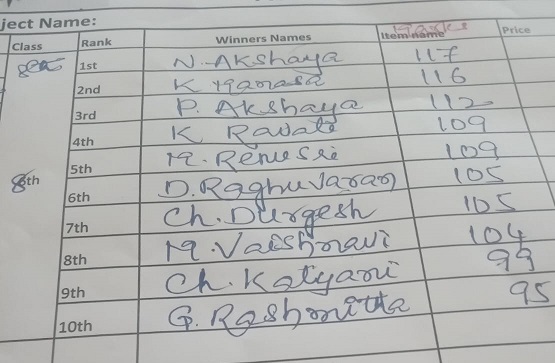 ject Name:
Class Rank Winners Names Item name Marks Price
1st N. Akshaya 117
2nd K Manasa 116
3rd P. Akshaya 112
4th K Ravali 109
5th M. Renusri 109
8th 6th D. Raghuvaran 105
7th Ch. Durgesh 105
8th M. Vaishnavi 104
9th Ch. Kalyani 99
10th G. Rashmitha 95